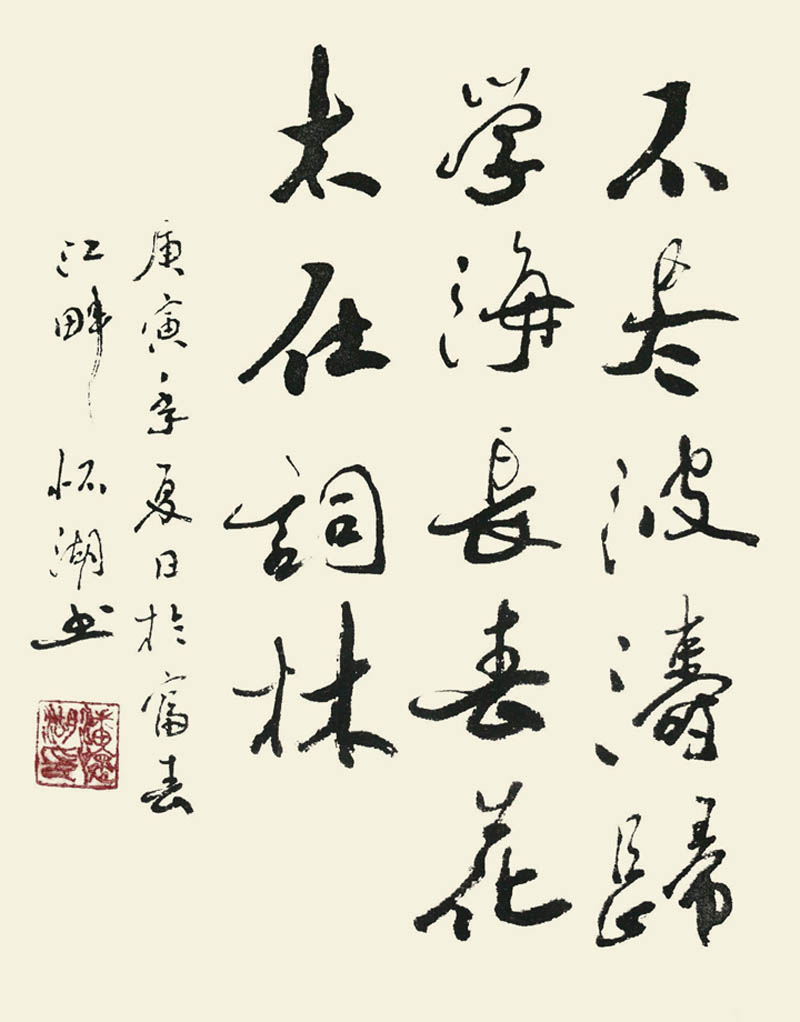 不尽波濤歸
学海長春花
木在詞林
庚寅年夏日於富春
江畔 怀湖书